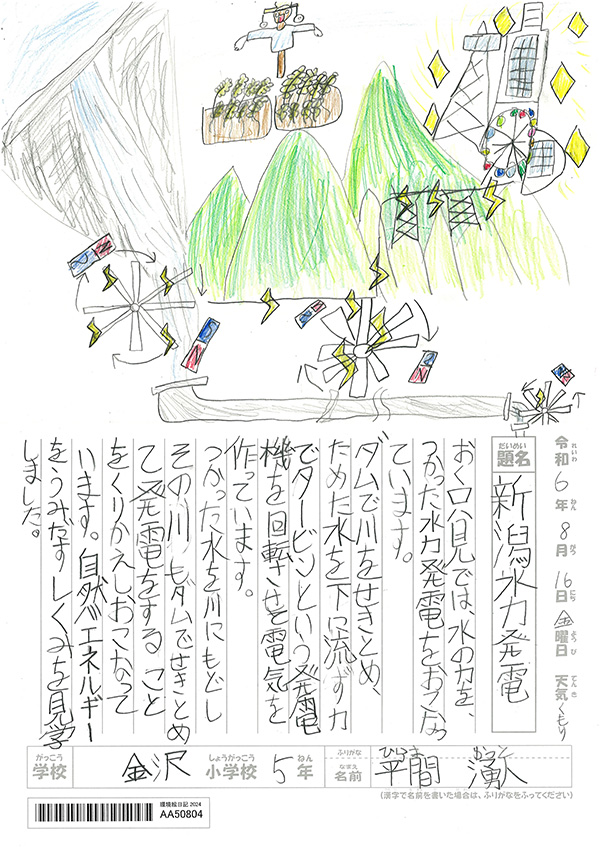 令和6年8月16日金曜日 天気くもり
れいわ ねん がつ にち ようび てんき
だいめい
題名 新潟水力発電
おく只見では、水の力を、
つかった水力発電をおこなっ
ています。
ダムで川をせきとめ、
ためた水を下に流す力
でタービンという発電
機を回転させ電気を
作っています。
つかった水を川にもどし
その川もダムでせきとめ
て発電をすること
をくりかえしおこなって
います。自然エネルギー
をうみだすしくみを見学
しました。
がっこう しょうがっこう ねん ふりがな ひらま
学校 金沢 小学校 5年 なまえ 名前 平間 湧人
(漢字で名前を書いた場合は、ふりがなをふってください)
環境絵日記 2024
AA50804